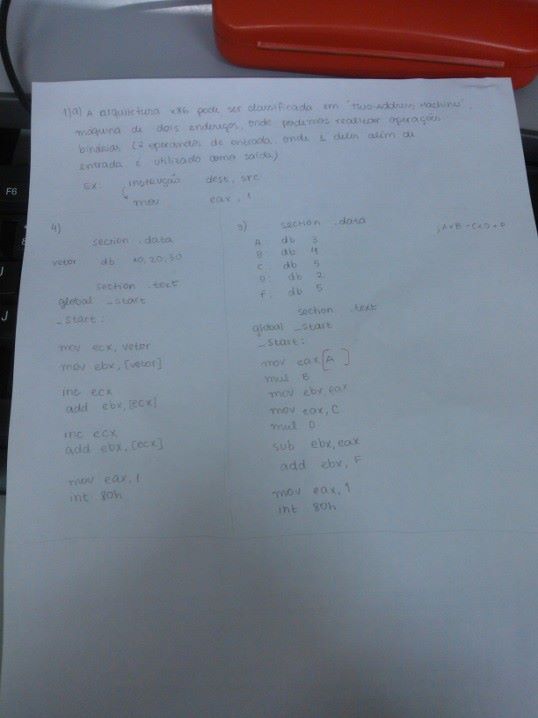 1)a) A arquitetura x86 pode ser classificada em "Two-Address Machine",
máquina de dois endereços, onde podemos realizar operações
binárias (2 operandos de entrada, onde 1 deles além de
entrada é utilizado como saída)
Ex: instrução dest, src
mov eax, 1
4)
section .data
vetor db 10,20,30
section .text
global _start
_start:
mov ecx, vetor
mov ebx, [vetor]
inc ecx
add ebx, [ecx]
inc ecx
add ebx, [ecx]
mov eax, 1
int 80h
3) section .data
;A*B-C*D+F
A db 3
B db 4
C: db 5
D: db 2
F: db 5
section .text
global _start
_start:
mov eax [A]
mul B
mov ebx, eax
mov eax, C
mul D
sub ebx, eax
add ebx, F
mov eax, 1
int 80h
F6
J